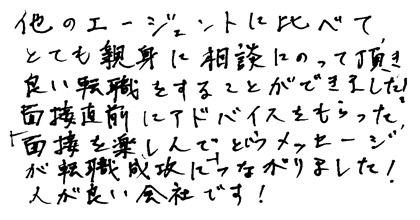 他のエージェントに比べて
とても親身に相談にのって頂き
良い転職をすることができました！
面接直前にアドバイスをもらった
「面接を楽しんで」というメッセージ
が転職成功につながりました！
人が良い会社です！